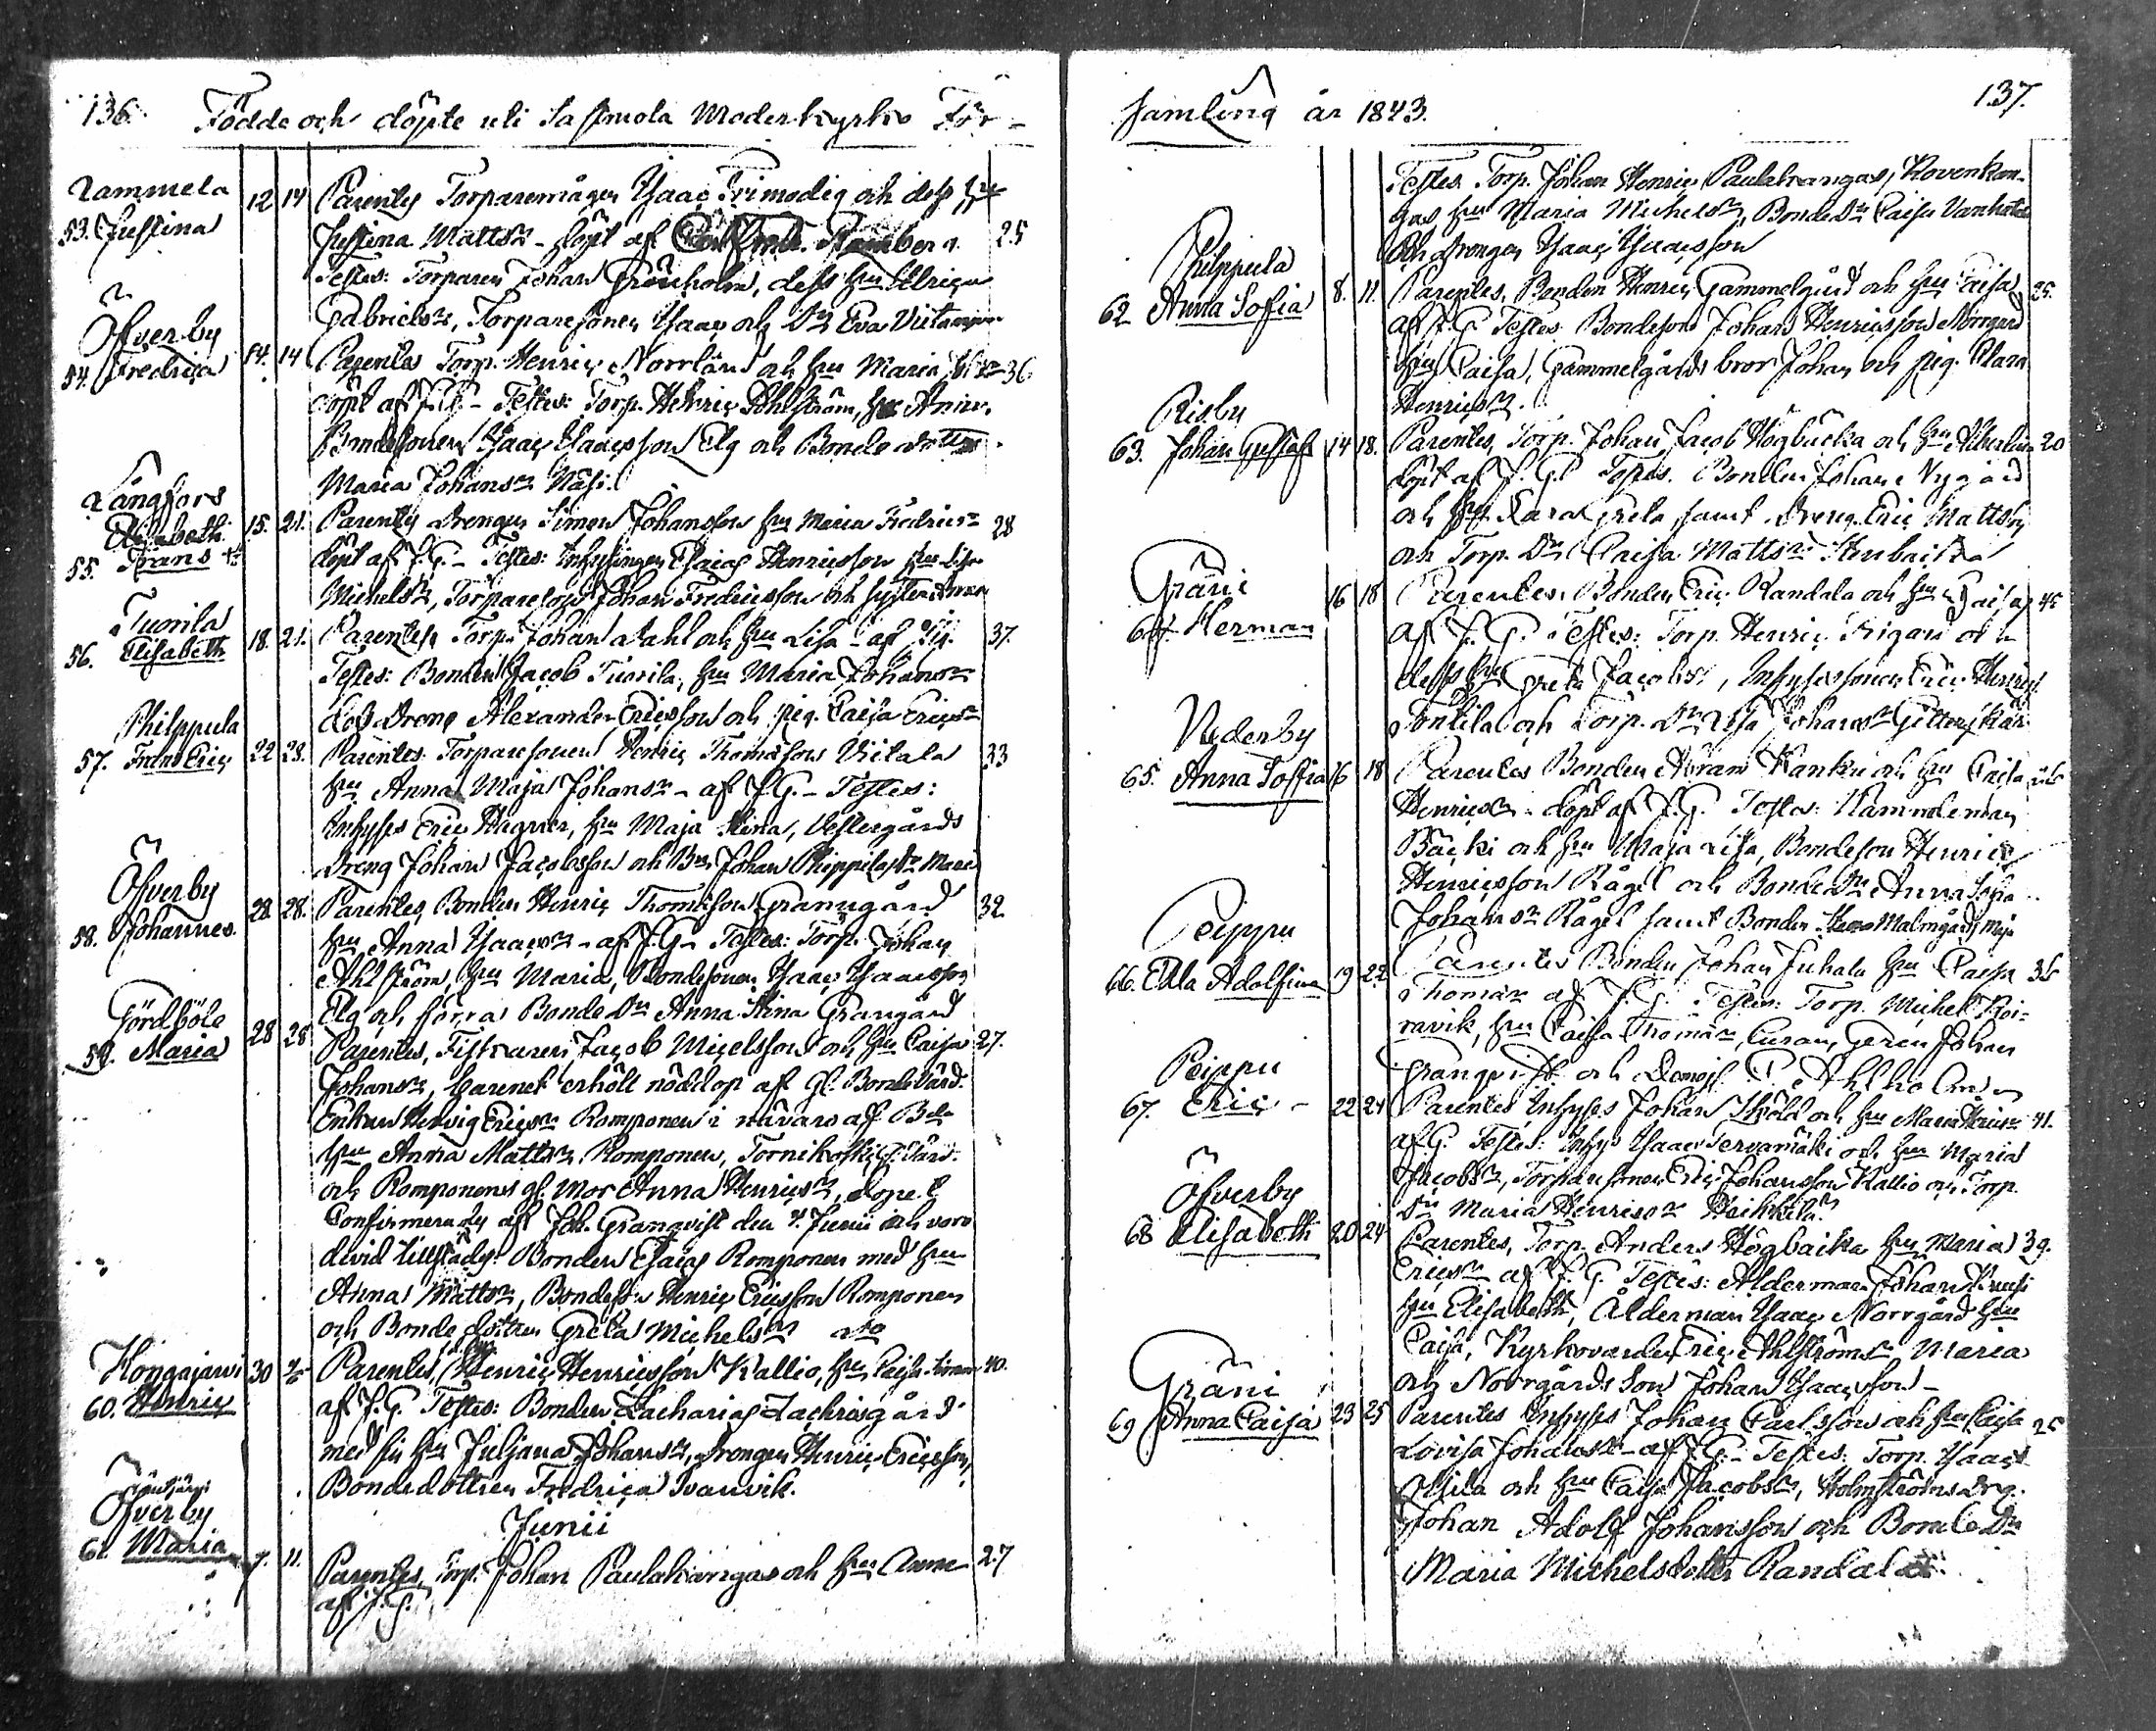 136. Födde och döpte uti Sastmola Moderkyrko För-
Lammela
53. Justina 12 14 Parentes Torparemågen Isaac Frimodig och dess hu
Justina Mattsdr - döpt af 25
Testes: Torparen Johan Grönholm, dess hu Ulrica
Gabrielsdr, Torparesonen Isaac och Dr Eva
Öfverby
54. Fredrica 14. 14 Parentes Torp. Henric Norrlän och hu Maria 36
döpt af J.G. - Testes: Torp. Henric Dahlström, hu Anna,
Bondesonen Isaac Isaacsson Elg och Bonde dottren
Maria Johansdr Näsi.
Långfors
Elisabeth
55. Frans 15. 21. Parentes Drengen Simon Johansson hu Maria Fredricsdr 28
döpt af J.G. - Testes: Inhysingen Esaias Henricsson hu Lisa
Michelsdr, Torpareson Johan Fredricsson och syster Anna
Tuorila
56. Elisabeth 18. 21. Parentes Torp. Johan Dahl och hu Lisa - af J.G. 37.
Testes: Bonden Jacob Tuorila, hu Maria Johansdr
Drong Alexander Ericsson och pig. Caisa Ericsdr
Philppula
57. Frans Eric 22 28. Parentes Torparesonen Henric Thomasson Vitala 33
hu Anna Maja Johansdr - af J.G. - Testes:
Inhyses Eric Hagner, hu Maja Stina, Vestergårds
Dreng Johan Jacobsson och Bn Johan Philppulas Dr Maria
Öfverby
58. Johannes 28. 28. Parentes, Bonden Henric Thomasson Granngård 32.
hu Anna Isaacsdr - af J.G. - Testes: Torp. Johan
Ahlström, hu Maria, Bondesonen Isaac Isaacsson
Elg och förra Bonde Dr Anna Stina Grangård
Gördböle
59. Maria 28 28 Parentes, Fiskaren Jacob Micelsson och hu Caisa 27.
Johansdr, barnet erhöll nöddop af gl. Bondevärd.
Enkan Hedvig Ericsdr Romponen i närvaro af Bde
hu Anna Mattsdr Romponen, Tornikoski gl. Värd.
och Romponens gl. Mor Anna Henricsdr, dopet
Confirmerades af Joh. Granqvist den 4. Junii och voro
dervid tillstädes: Bonden Esaias Romponen med hu
Anna Mattsdr, Bondeson Henric Ericsson Romponen
och Bonde dottren Greta Michelsdr do
Kongajarvi
60. Henric 30 Parentes, Henric Henricsson Kallio, hu Caisa 40.
af J.G. Testes: Bonden Zacharias Zachrisgård
med sin hu Juliana Johansdr, Drengen Henric Ericsson,
Bondedottren Fredrica Svanvik.
Junii
Öfverby
61. Maria 7. 11. Parentes, Torp. Johan Paulakangas och hu Anna 27
af J.G.
samling år 1843. 137.
Testes Torp. Johan Henric Paulakangas, Kovenkan-
gas hu Maria Michelsdr, Bonde Dr Caisa Vanhatalo
och Drengen Isaac Isaacsson
Philppula
62 Anna Sofia 8. 11. Parentes, Bonden Henric Gammelgård och hu Caisa 25.
af J.G. Testes Bondeson Johan Henricsson Norrgård
hu Caisa, Gammelgårds bror Johan och pig. Clara
Henricsdr.
Risby
63. Johan Gustaf 14 18. Parentes, Torp. Johan Jacob Högbacka och hu Albertina 20
döpt af J.G. Testes. Bonden Johan Nygård
och hu Cara Greta, samt Dreng. Eric Mattsson
och Torp. Dr Caisa Mattsdr
Gräni
64. Herman 16 18 Parentes: Bonden Eric Randala och hu Caisa 45
af J.G. Testes: Torp. Henric Frigård och
dess hu Greta Jacobsdr, Inhysessonen Eric Henrics.
Tontila och Torp. Dr Lisa Johansdr
Nederby
65. Anna Soffia 16 18 Parentes Bonden Abram Kanku och hu Caisa
Henricsdr - döpt af J.G. Testes: Nämndeman
Bäcki och hu Maja Lisa, Bondeson Henric
Henricsson Rågel och Bonde Dr Anna Sofia
Johansdr Rågel samt Bonden Malmgårds
Peippu
66. Edla Adolfina 19 22 Parentes Bonden Johan Juhala hu Caisa 36
Thomasdr af J.G. Testes: Torp. Michel Koi-
ravik, hu Caisa Thomasdr, Curam Geren Johan
Granqvist och Demois. P. Ahlholm
Peippu
67. Eric - 22 24 Parentes Inhyses Johan Sköld och hu Maria 41.
af G. Testes: Inhys Isaac Tervamäki och hu Maria
Jacobsdr, Torparesonen Eric Johansson Kallio och Torp.
Dr Maria Henricsdr Heikkilä
Öfverby
68 Elisabeth 20 24 Parentes, Torp. Anders Högbacka hu Maria 39.
Ericsdr af J.G. Testes: Alderman Johan
hu Elisabeth, Ålderman Isaac Norrgård hu
Caisa, Kyrkovärden Eric Ahlströms Dr Maria
och Norrgårds Son Johan Isaacsson -
Gräni
69 Anna Caisa 23 25 Parentes Inhyses Johan Carlsson och hu Caisa 25
Lovisa Johansdr - af J.G. - Testes: Torp. Isaac
och hu Caisa Jacobsdr, Holmströms Drg.
Johan Adolf Johansson och Bonde Dr
Maria Michelsdotter Randala.